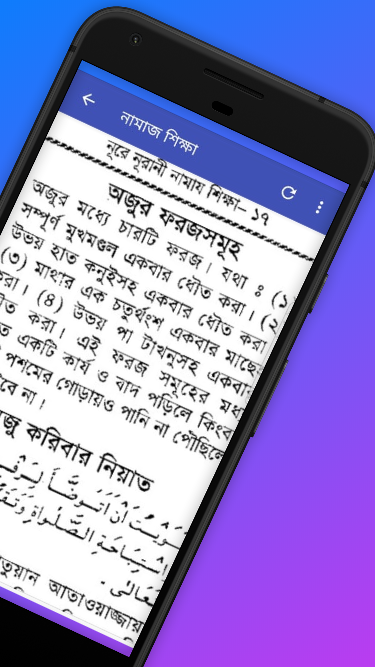 নামাজ শিক্ষা
নূরে নূরানী নামায শিক্ষা– ১৭
অজুর ফরজসমূহ
অজুর মধ্যে চারটি ফরজ। যথা : (১)
সম্পূর্ণ মুখমণ্ডল একবার ধৌত করা। (২
উভয় হাত কনুইসহ একবার ধৌত করা
(৩) মাথার এক চতুর্থংশ একবার মাছেহ
করা। (৪) উভয় পা টাখনুসহ একবার
ধৌত করা। এই ফরজ সমূহের মধ্য
একটি কার্য ও বাদ পড়িলে কিংব
পশমের গোড়ায়ও পানি না পৌছিলে
না।
করিবার নিয়াত
أَنْ أَتَوَضَّأَ لِرَفْ
اِسْتِبَاحَةَ الصَّلٰوةِ وَتَقَ
تَعَالٰى -
আতাওয়াজ্জায়